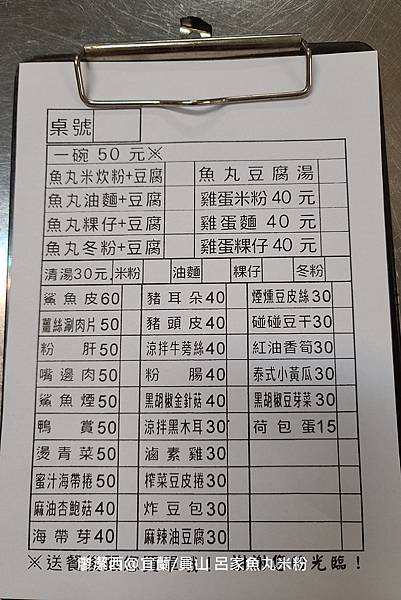 桌號
一碗 50 元※
魚丸米炊粉+豆腐 魚丸豆腐湯
魚丸油麵+豆腐 雞蛋米粉 40 元
魚丸粿仔+豆腐 雞蛋麵 40 元
魚丸冬粉+豆腐 雞蛋粿仔 40 元
清湯30元,米粉 油麵 粿仔 冬粉
鯊魚皮60 豬耳朵40 煙燻豆皮絲30
薑絲涮肉片50 豬頭皮40 碰碰豆干30
粉肝50 涼拌牛蒡絲40 紅油香筍30
嘴邊肉50 粉腸40 泰式小黃瓜30
鯊魚煙50 黑胡椒金針菇40 黑胡椒豆芽菜30
鴨賞50 涼拌黑木耳30 荷包蛋15
燙青菜50 滷素雞30
蜜汁海帶捲50 榨菜豆皮捲30
麻油杏鮑菇40 炸豆包30
海帶芽40 麻辣油豆腐30
※送餐 光臨!
@宜蘭/員山 呂家魚丸米粉